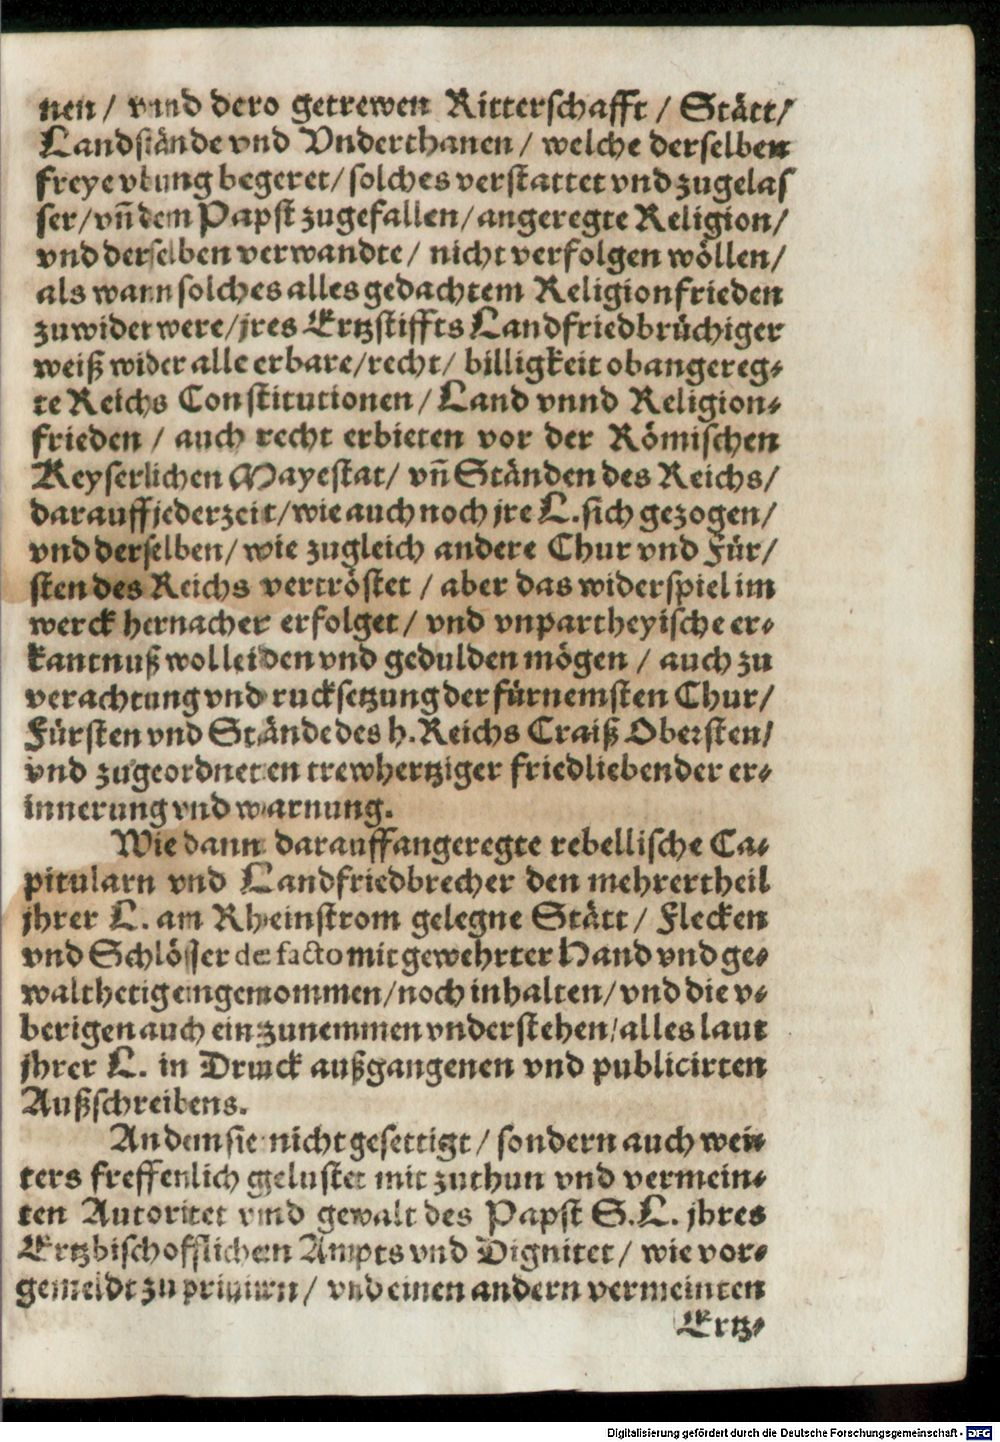 nen / vnnd dero getrewen Ritterschafft / Stätt /
Landstände vnd Vnderthanen / welche derselben
freye vbung begeret / solches verstattet vnd zugelas
ser / vn̄ dem Papst zugefallen / angeregte Religion /
vnd derselben verwandte / nicht verfolgen wöllen /
als wann solches alles gedachtem Religionfrieden
zuwider were / jres Ertzstiffts Landfriedbrüchiger
weiß wider alle erbare / recht / billigkeit obangereg-
te Reichs Constitutionen / Land vnnd Religion-
frieden / auch recht erbieten vor der Römischen
Keyserlichen Mayestat / vn̄ Ständen des Reichs /
darauff jederzeit / wie auch noch jre L. sich gezogen /
vnd derselben / wie zugleich andere Chur vnd Für /
sten des Reichs vertröstet / aber das widerspiel im
werck hernacher erfolget / vnd vnpartheyische er-
kantnuß wol leiden vnd gedulden mögen / auch zu
verachtung vnd rucksetzung der fürnemsten Chur /
Fürsten vnd Stände des h. Reichs Craiß Obersten /
vnd zugeordneten trewhertziger friedliebender er-
innerung vnd warnung.
Wie dann darauff angeregte rebellische Ca-
pitularn vnd Landfriedbrecher den mehrertheil
jhrer L. am Rheinstrom gelegne Stätt / Flecken
vnd Schlösser de facto mit gewehrter Hand vnd ge-
walthetig eingenommen / noch inhalten / vnd die v-
berigen auch ein zunemmen vnderstehen / alles laut
jhrer L. in Druck außgangenen vnd publicirten
Außschreibens.
An dem sie nicht gesettigt / sondern auch wei-
ters freffenlich gelustet mit zuthun vnd vermein-
ten Autoritet vnd gewalt des Papst S. L. jhres
Ertzbischofflichen Ampts vnd Dignitet / wie vor-
gemeldt zu priuirn / vnd einen andern vermeinten
Ertz-
Digitalisierung gefördert durch die Deutsche Forschungsgemeinschaft - DFG